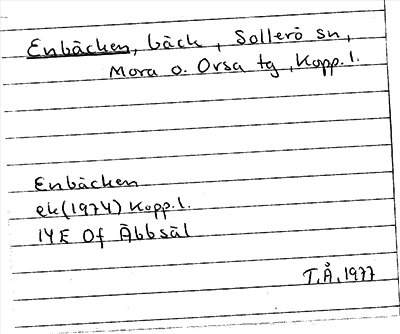 Enbäcken, bäck, Sollerö sn,
Mora o. Orsa tg, Kopp.l.
Enbäcken
ek(1974) Kopp.l.
14E Of Äbbsäl
T.Å. 1977